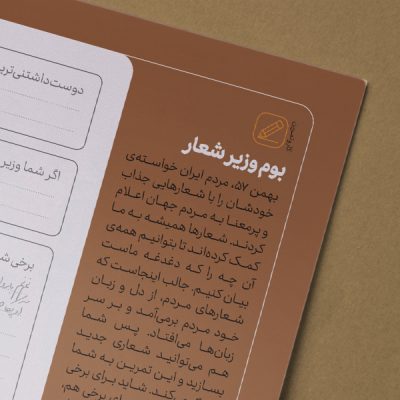 کارتمرین
بوم وزیر شعار
بهمن ۵۷، مردم ایران خواسته‌ی
خودشان را با شعارهایی جذاب
و پرمعنا به مردم جهان اعلام
کردند. شعارها همیشه به ما
کمک کرده‌اند تا بتوانیم همه‌ی
آن چه را که دغدغه ماست
بیان کنیم. جالب اینجاست که
شعارهای مردم، از دل و زبان
خود مردم برمی‌آمد و بر سر
زبان‌ها می‌افتاد. پس شما
هم می‌توانید شعاری جدید
بسازید و این تمرین به شما
کند. شاید برای برخی
برای برخی هم،
دوست‌داشتنی‌تری
اگر شما وزیر
برخی ش